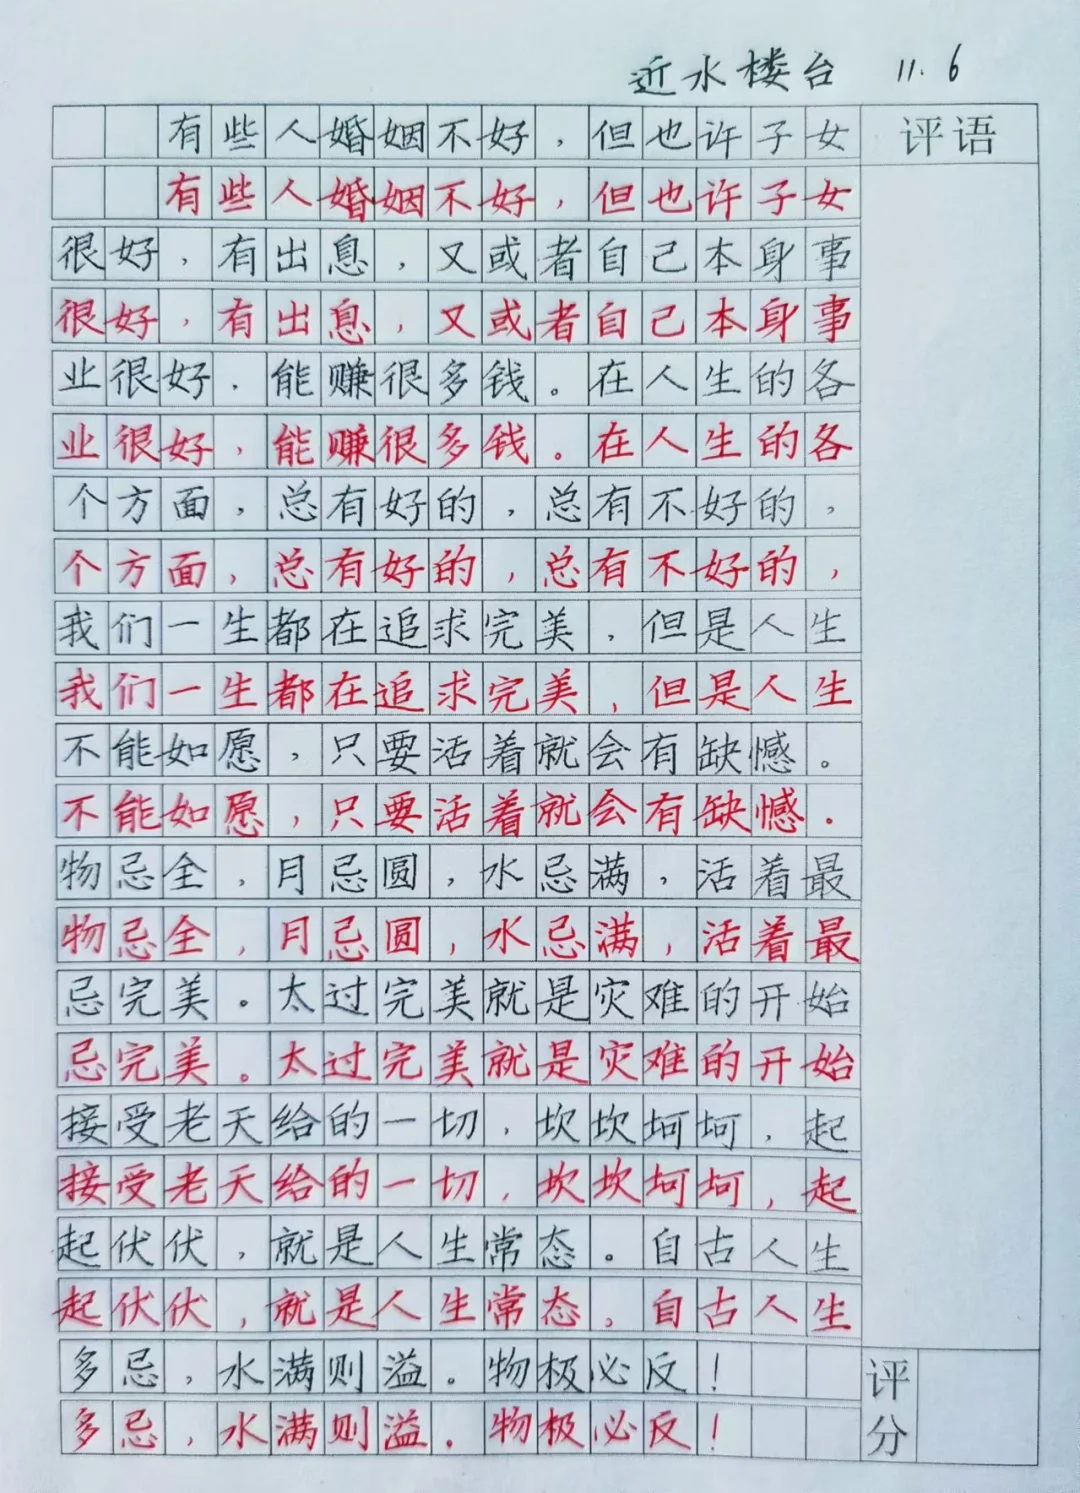 近水楼台 11.6
有些人婚姻不好，但也许子女
评语
有些人婚姻不好，但也许子女
很好，有出息，又或者自己本身事
很好，有出息，又或者自己本身事
业很好．能赚很多钱。在人生的各
业很好，能赚很多钱。在人生的各
个方面，总有好的，总有不好的，
个方面，总有好的，总有不好的，
我们一生都在追求完美，但是人生
我们一生都在追求完美，但是人生
不能如愿，只要活着就会有缺憾。
不能如愿，只要活着就会有缺憾．
物忌全，月忌圆，水忌满，活着最
物忌全，月忌圆，水忌满，活着最
忌完美。太过完美就是灾难的开始
忌完美。太过完美就是灾难的开始
接受老天给的一切，坎坎坷坷，起
接受老天给的一切，坎坎坷坷，起
起伏伏，就是人生常态。自古人生
起伏伏，就是人生常态。自古人生
多忌，水满则溢。物极必反！
多忌，水满则溢．物极必反！
评分